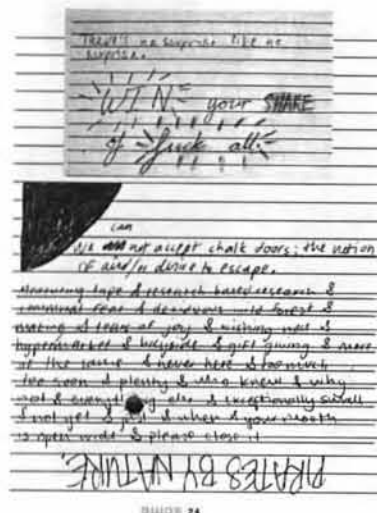 There's no surprise like no
surprise.
WIN your SHARE
of fuck all.
can
We not accept chalk doors; the notion
of and/or desire to escape.
Measuring tape & research based research &
criminal fear & & forest &
making & tears of joy & wishing not &
hypermarket & & gift giving & more
of the same & never here & too much
too soon & plenty & who knew & why
not & everything else & exceptionally small
& not yet & just & when & your mouth
is open wide & please close it
PIRATES BY NATURE.
24